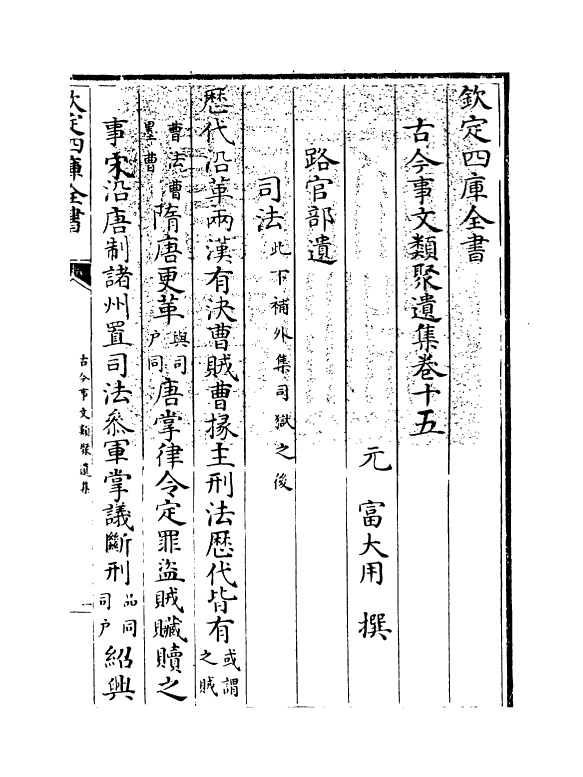 欽定四庫全書
古今事文類聚遺集卷十五
元 富大用 撰
路官部遺
司法此下補外集司獄之後
歴代沿革兩漢有決曹賊曹掾主刑法歴代皆有或謂之賊
曹法曹墨曹隋唐更革與司户同唐掌律令定罪盜賊贓贖之
事宋沿唐制諸州置司法叅軍掌議斷刑品同司户紹興
欽定四庫全書
古今事文類聚遺集
一